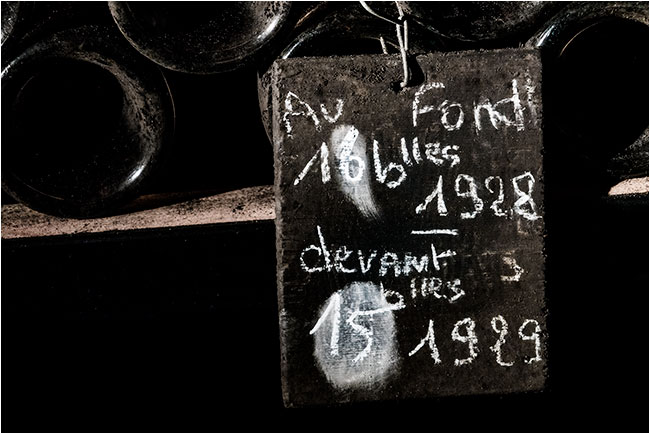 Au Fond
16 blles
1928
devant
15 blles
1929